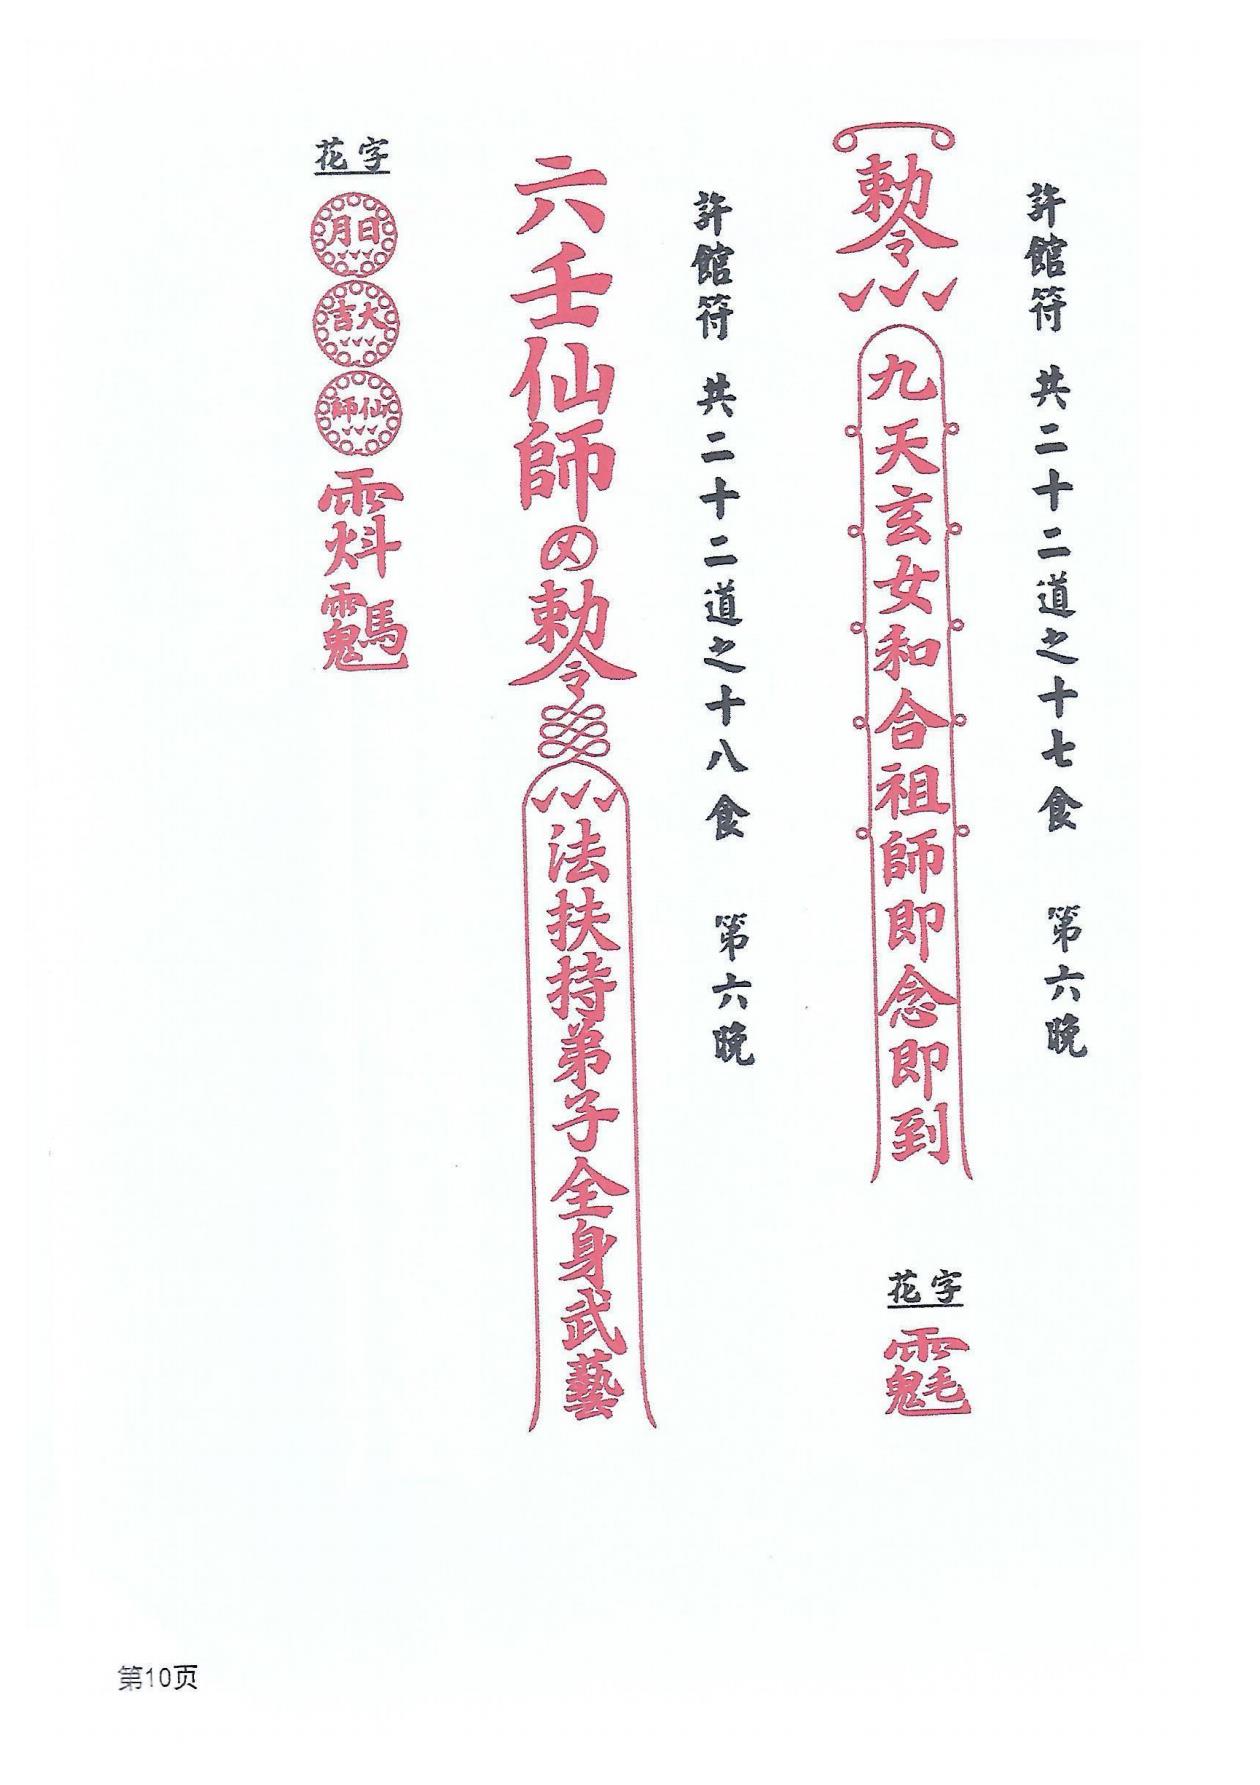 許館符 共二十二道之十七食 第六晚
勅令
九天玄女和合祖師即念即到
花字
許館符 共二十二道之十八食 第六晚
六壬仙師
勅令
法扶持弟子全身武藝
花字
日月
大吉
仙師
第10页